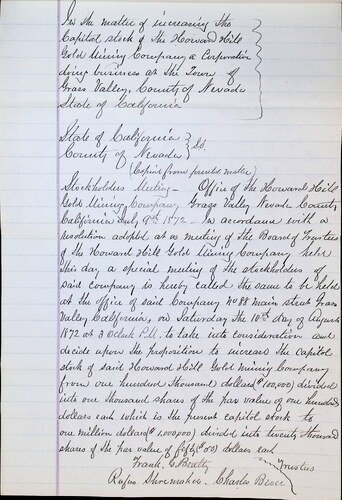 In the matter of increasing the
Capitol stock of the Howard Hill
Gold Mining Company a Corporation
doing business at the Town of
Grass Valley, County of Nevada
State of California
State of California
County of Nevada } SS.
(Copied from printed matter)
Stockholders Meeting – Office of the Howard Hill
Gold Mining Company Grass Valley Nevada County
California July 9th 1872 – In accordance with a
resolution adopted at a meeting of the Board of Trustees
of the Howard Hill Gold Mining Company held
this day, a special meeting of the stockholders of
said company is hereby called the same to be held
at the office of said Company No 88 Main street Grass
Valley California, on Saturday the 10th day of August
1872 at 3 Oclock P.M. to take into consideration and
decide upon the proposition to increase the capitol
stock of said Howard Hill Gold Mining Company
from one hundred thousand dollars ($100,000) divided
into one thousand shares of the par value of one hundred
dollars each which is the present capitol stock to
one million dollars ($1,000,000) divided into twenty thousand
shares of the par value of fifty ($50) dollars each
Frank G. Beatty
Rufus Shoemaker, Charles } Trustees